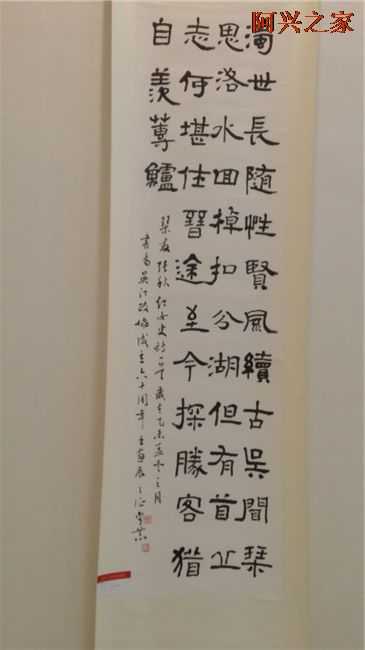 阿兴之家
濁世長隨性賢風續古吳聞琹
思洛水回掉扣分湖但有首丘
志何堪仕晉途至今探勝客猶
自羨蓴鱸
女史詩一首歲在乙未孟冬之月
書為吳江政協成立六十周年書畫展之